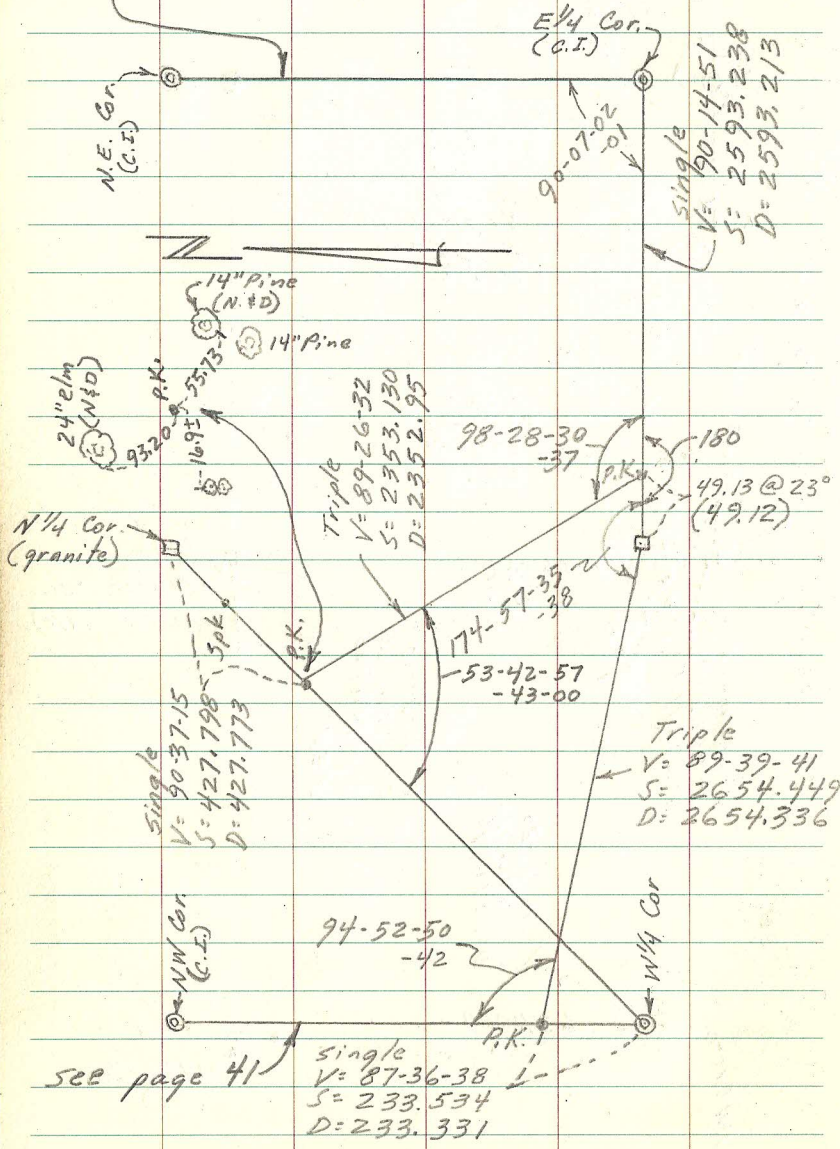 E 1/4 Cor.
(C.I.)
N.E. Cor.
(C.I.)
90-07-02
-01
Single
V= 90-14-51
S= 2593.238
D= 2593.213
N
14" Pine
(N.&D)
14" Pine
24" elm
(N&D)
P.K.
55.73
93.20
16.9±
Triple
V= 89-26-32
S= 2353.130
D= 2352.95
98-28-30
-37
180
P.K.
49.13 @ 23°
(49.12)
N 1/4 Cor.
(granite)
Spk
P.K.
174-57-35
-38
53-42-57
-43-00
Single
V= 90-37-15
S= 427.798
D= 427.773
Triple
V= 89-39-41
S= 2654.449
D= 2654.336
NW Cor.
(C.I.)
94-52-50
-42
W 1/4 Cor
P.K.
see page 41
single
V= 87-36-38
S= 233.534
D= 233.331